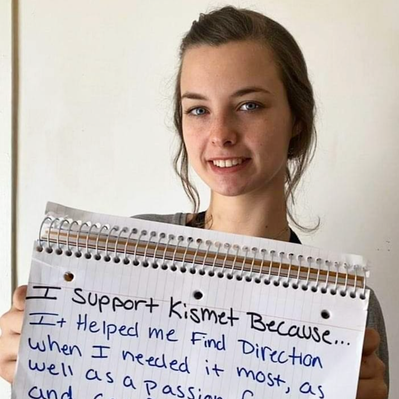 I Support Kismet Because...
It Helped me Find Direction
when I needed it most, as
well as a passion
and